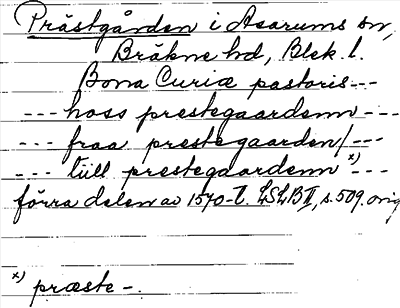 Prästgården i Asarums sn,
Bräkne hd, Blek. l.
Bona Curiæ pastoris ---
--- hoss prestegaardenn ---
--- fraa prestegaarden/ ---
--- tüll prestegaardenn x) ---
förra delen av 1570-t. LSLB II, s. 509. orig
x) præste -.